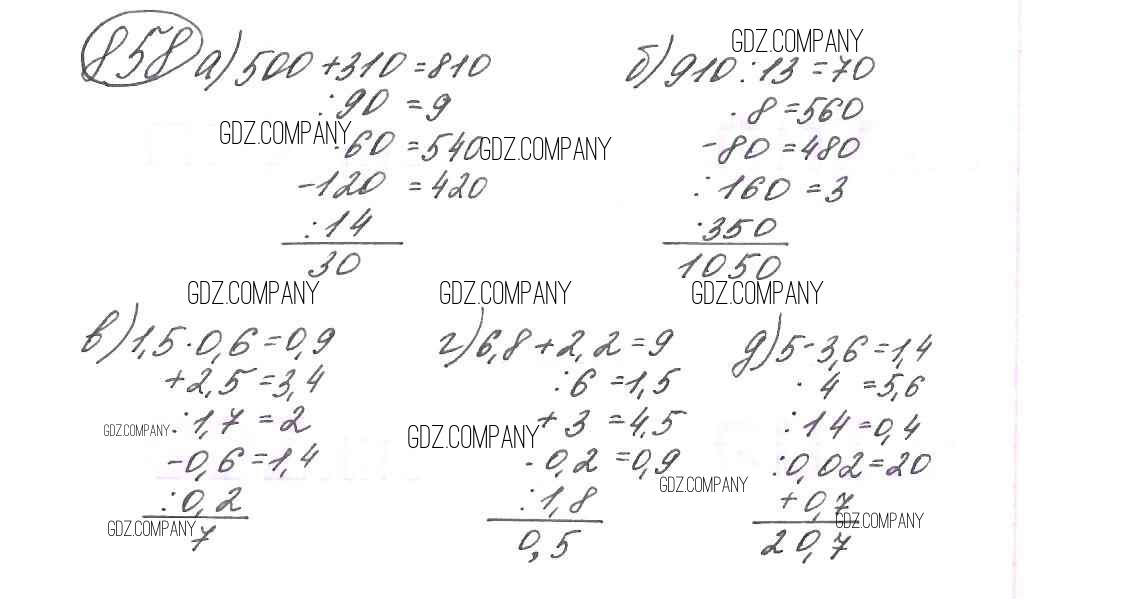 858 а) 500 + 310 = 810
: 90 = 9
· 60 = 540
- 120 = 420
: 14
30
GDZ.COMPANY
GDZ.COMPANY
GDZ.COMPANY
б) 910 : 13 = 70
· 8 = 560
- 80 = 480
: 160 = 3
· 350
1050
GDZ.COMPANY
GDZ.COMPANY
GDZ.COMPANY
в) 1,5 · 0,6 = 0,9
+ 2,5 = 3,4
: 1,7 = 2
- 0,6 = 1,4
: 0,2
7
GDZ.COMPANY
GDZ.COMPANY
г) 6,8 + 2,2 = 9
: 6 = 1,5
+ 3 = 4,5
· 0,2 = 0,9
: 1,8
0,5
GDZ.COMPANY
GDZ.COMPANY
д) 5 - 3,6 = 1,4
· 4 = 5,6
: 14 = 0,4
: 0,02 = 20
+ 0,7
20,7
GDZ.COMPANY